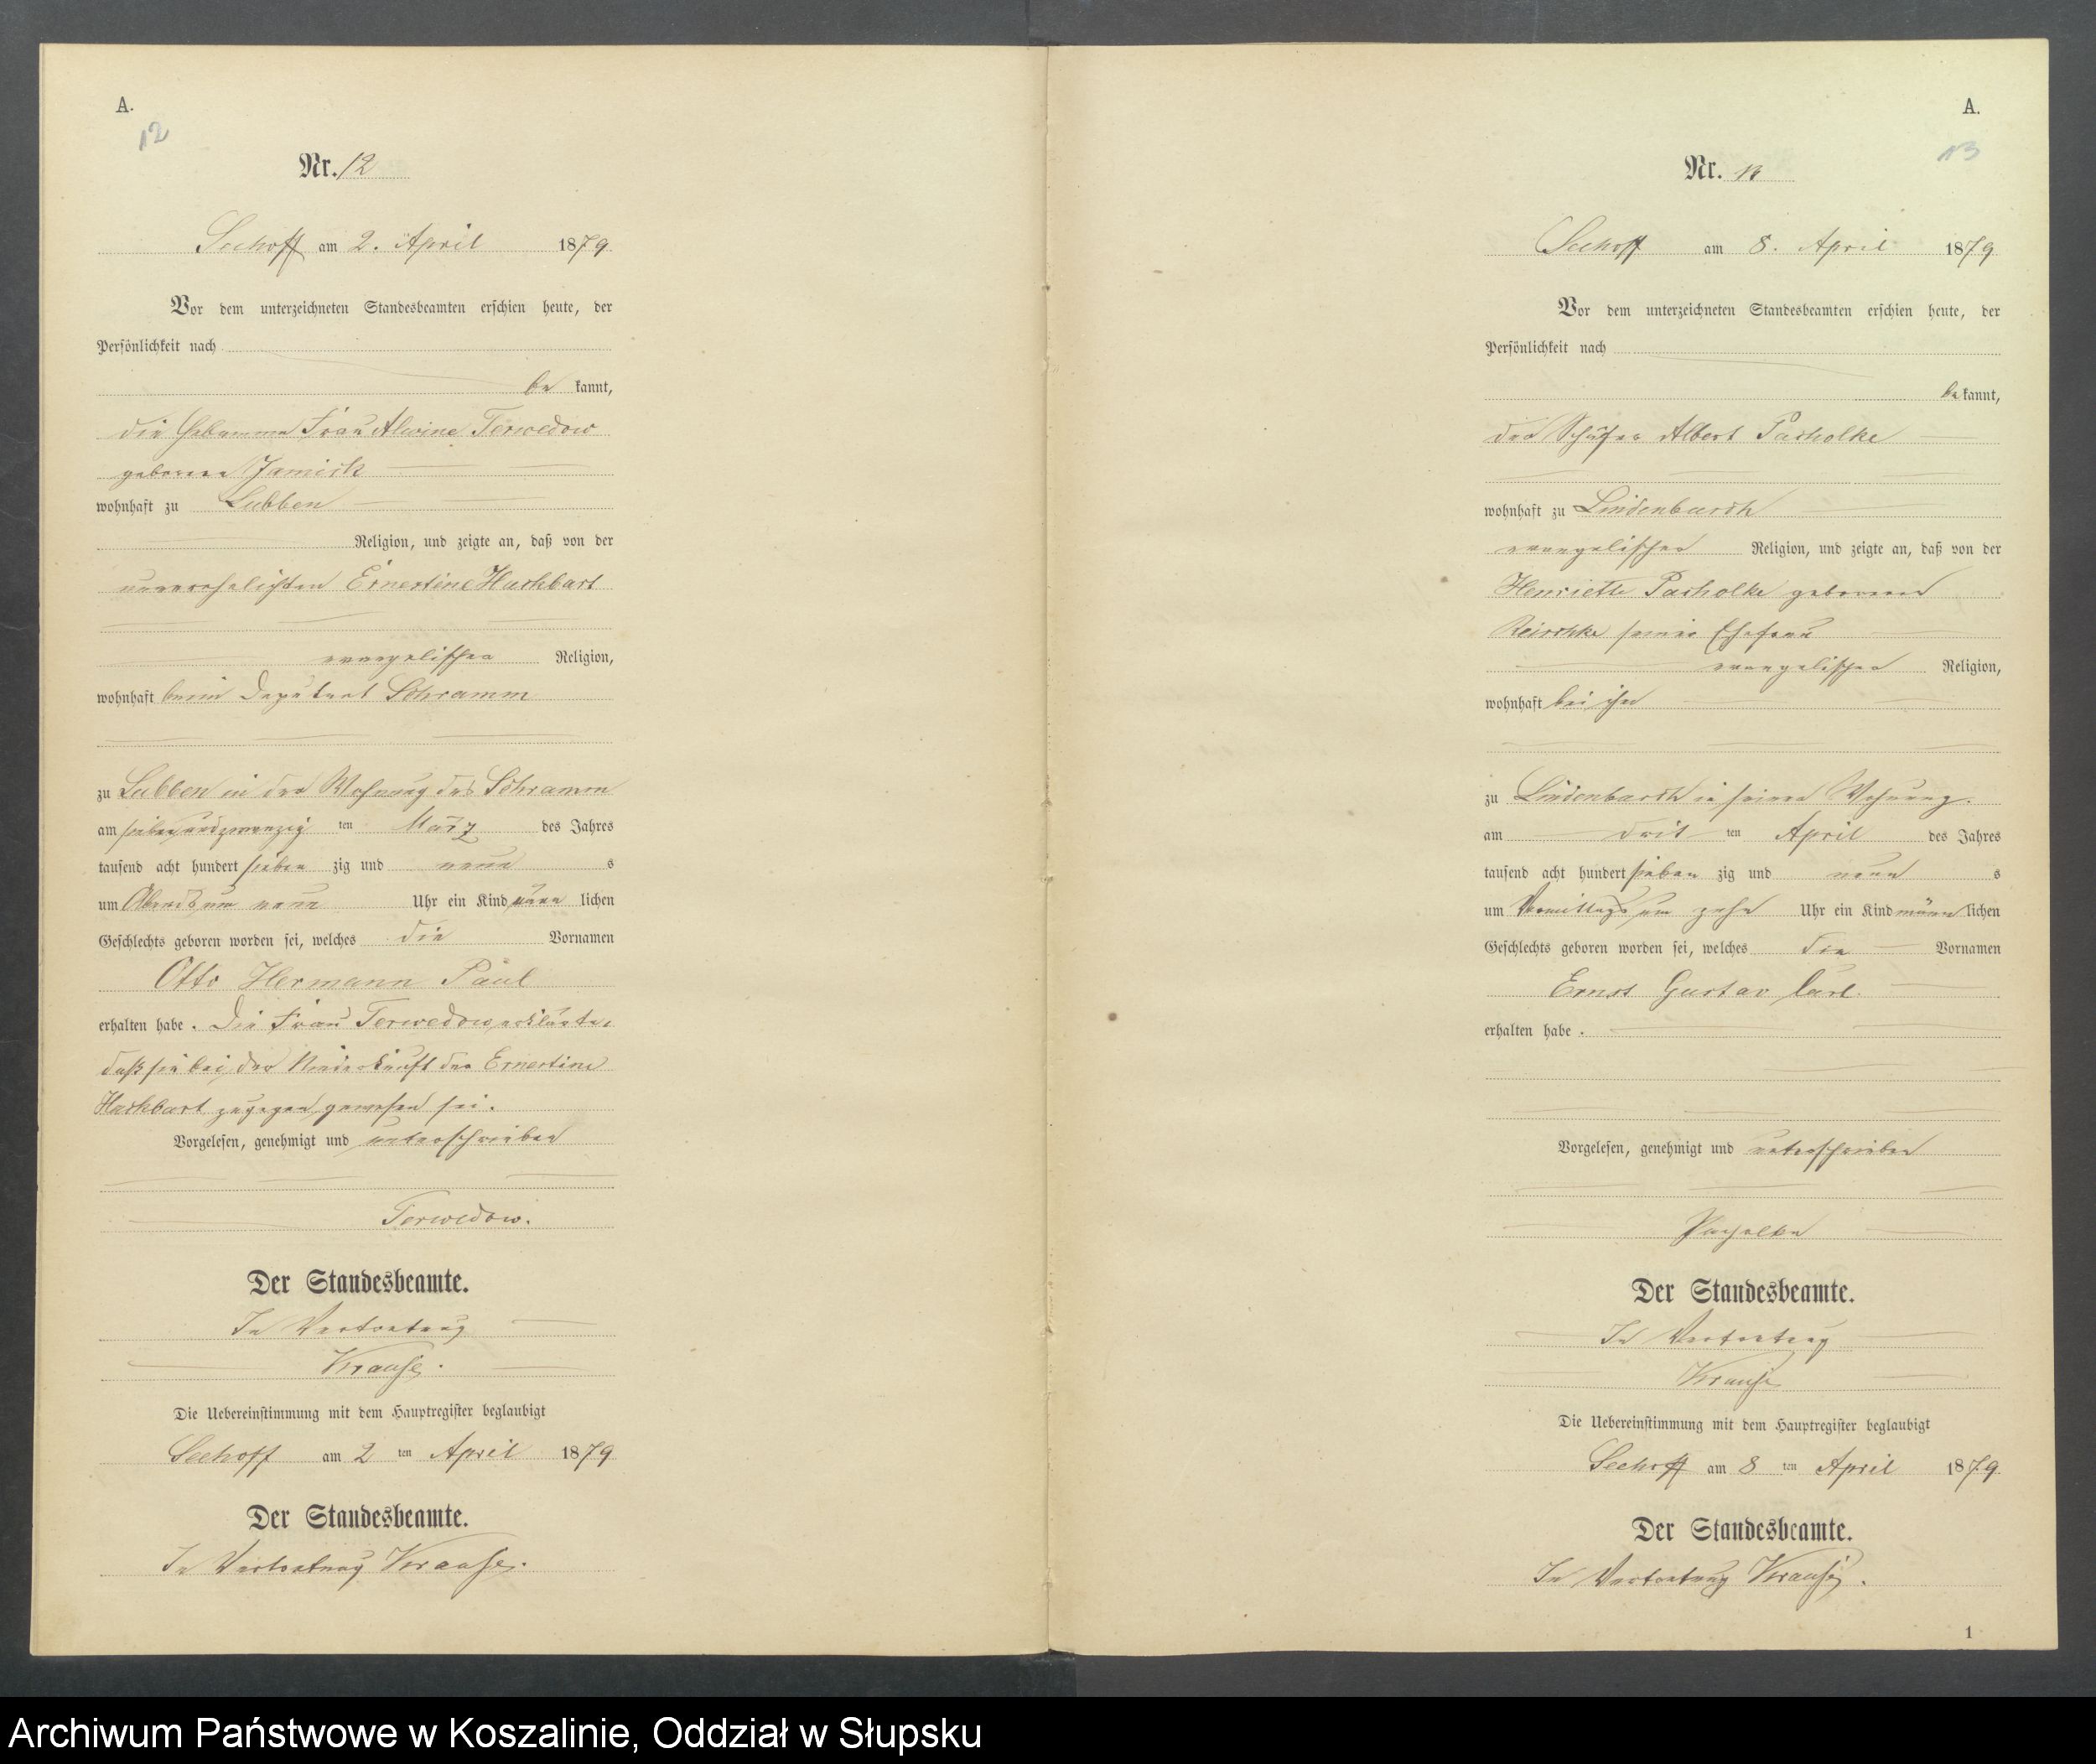 A.
12
Nr. 12
Seehoff am 2. April 1879
Vor dem unterzeichneten Standesbeamten erschien heute, der
Persönlichkeit nach
be kannt,
die Hebamme Frau Alwine Terwedow
geborene Jamick
wohnhaft zu Lubben
Religion, und zeigte an, daß von der
unverehelichten Ernestine Hackbart
evangelischer Religion,
wohnhaft beim Deputant Schramm
zu Lubben in der Wohnung des Schramm
am sieben und zwanzig ten März des Jahres
tausend acht hundert sieben zig und neun s
um Abends um neun Uhr ein Kind männ lichen
Geschlechts geboren worden sei, welches die Vornamen
Otto Hermann Paul
erhalten habe. Die Frau Terwedow erklärte,
daß sie bei der Niederkunft der Ernestine
Hackbart zugegen gewesen sei.
Vorgelesen, genehmigt und unterschrieben
Terwedow.
Der Standesbeamte.
In Vertretung
Krause.
Die Uebereinstimmung mit dem Hauptregister beglaubigt
Seehoff am 2 ten April 1879
Der Standesbeamte.
In Vertretung Krause.
A.
13
Nr. 13
Seehoff am 8. April 1879
Vor dem unterzeichneten Standesbeamten erschien heute, der
Persönlichkeit nach
be kannt,
der Schäfer Albert Pacholke
wohnhaft zu Lindenbusch
evangelischer Religion, und zeigte an, daß von der
Henriette Pacholke geborenen
seiner Ehefrau
evangelischer Religion,
wohnhaft bei ihm
zu Lindenbusch in seiner Wohnung.
am drit ten April des Jahres
tausend acht hundert sieben zig und neun s
um Vormittags um zehn Uhr ein Kind männ lichen
Geschlechts geboren worden sei, welches die Vornamen
Ernst Gustav Carl.
erhalten habe.
Vorgelesen, genehmigt und unterschrieben
Pacholke
Der Standesbeamte.
In Vertretung
Krause
Die Uebereinstimmung mit dem Hauptregister beglaubigt
Seehoff am 8 ten April 1879
Der Standesbeamte.
In Vertretung Krause.
1
Archiwum Państwowe w Koszalinie, Oddział w Słupsku